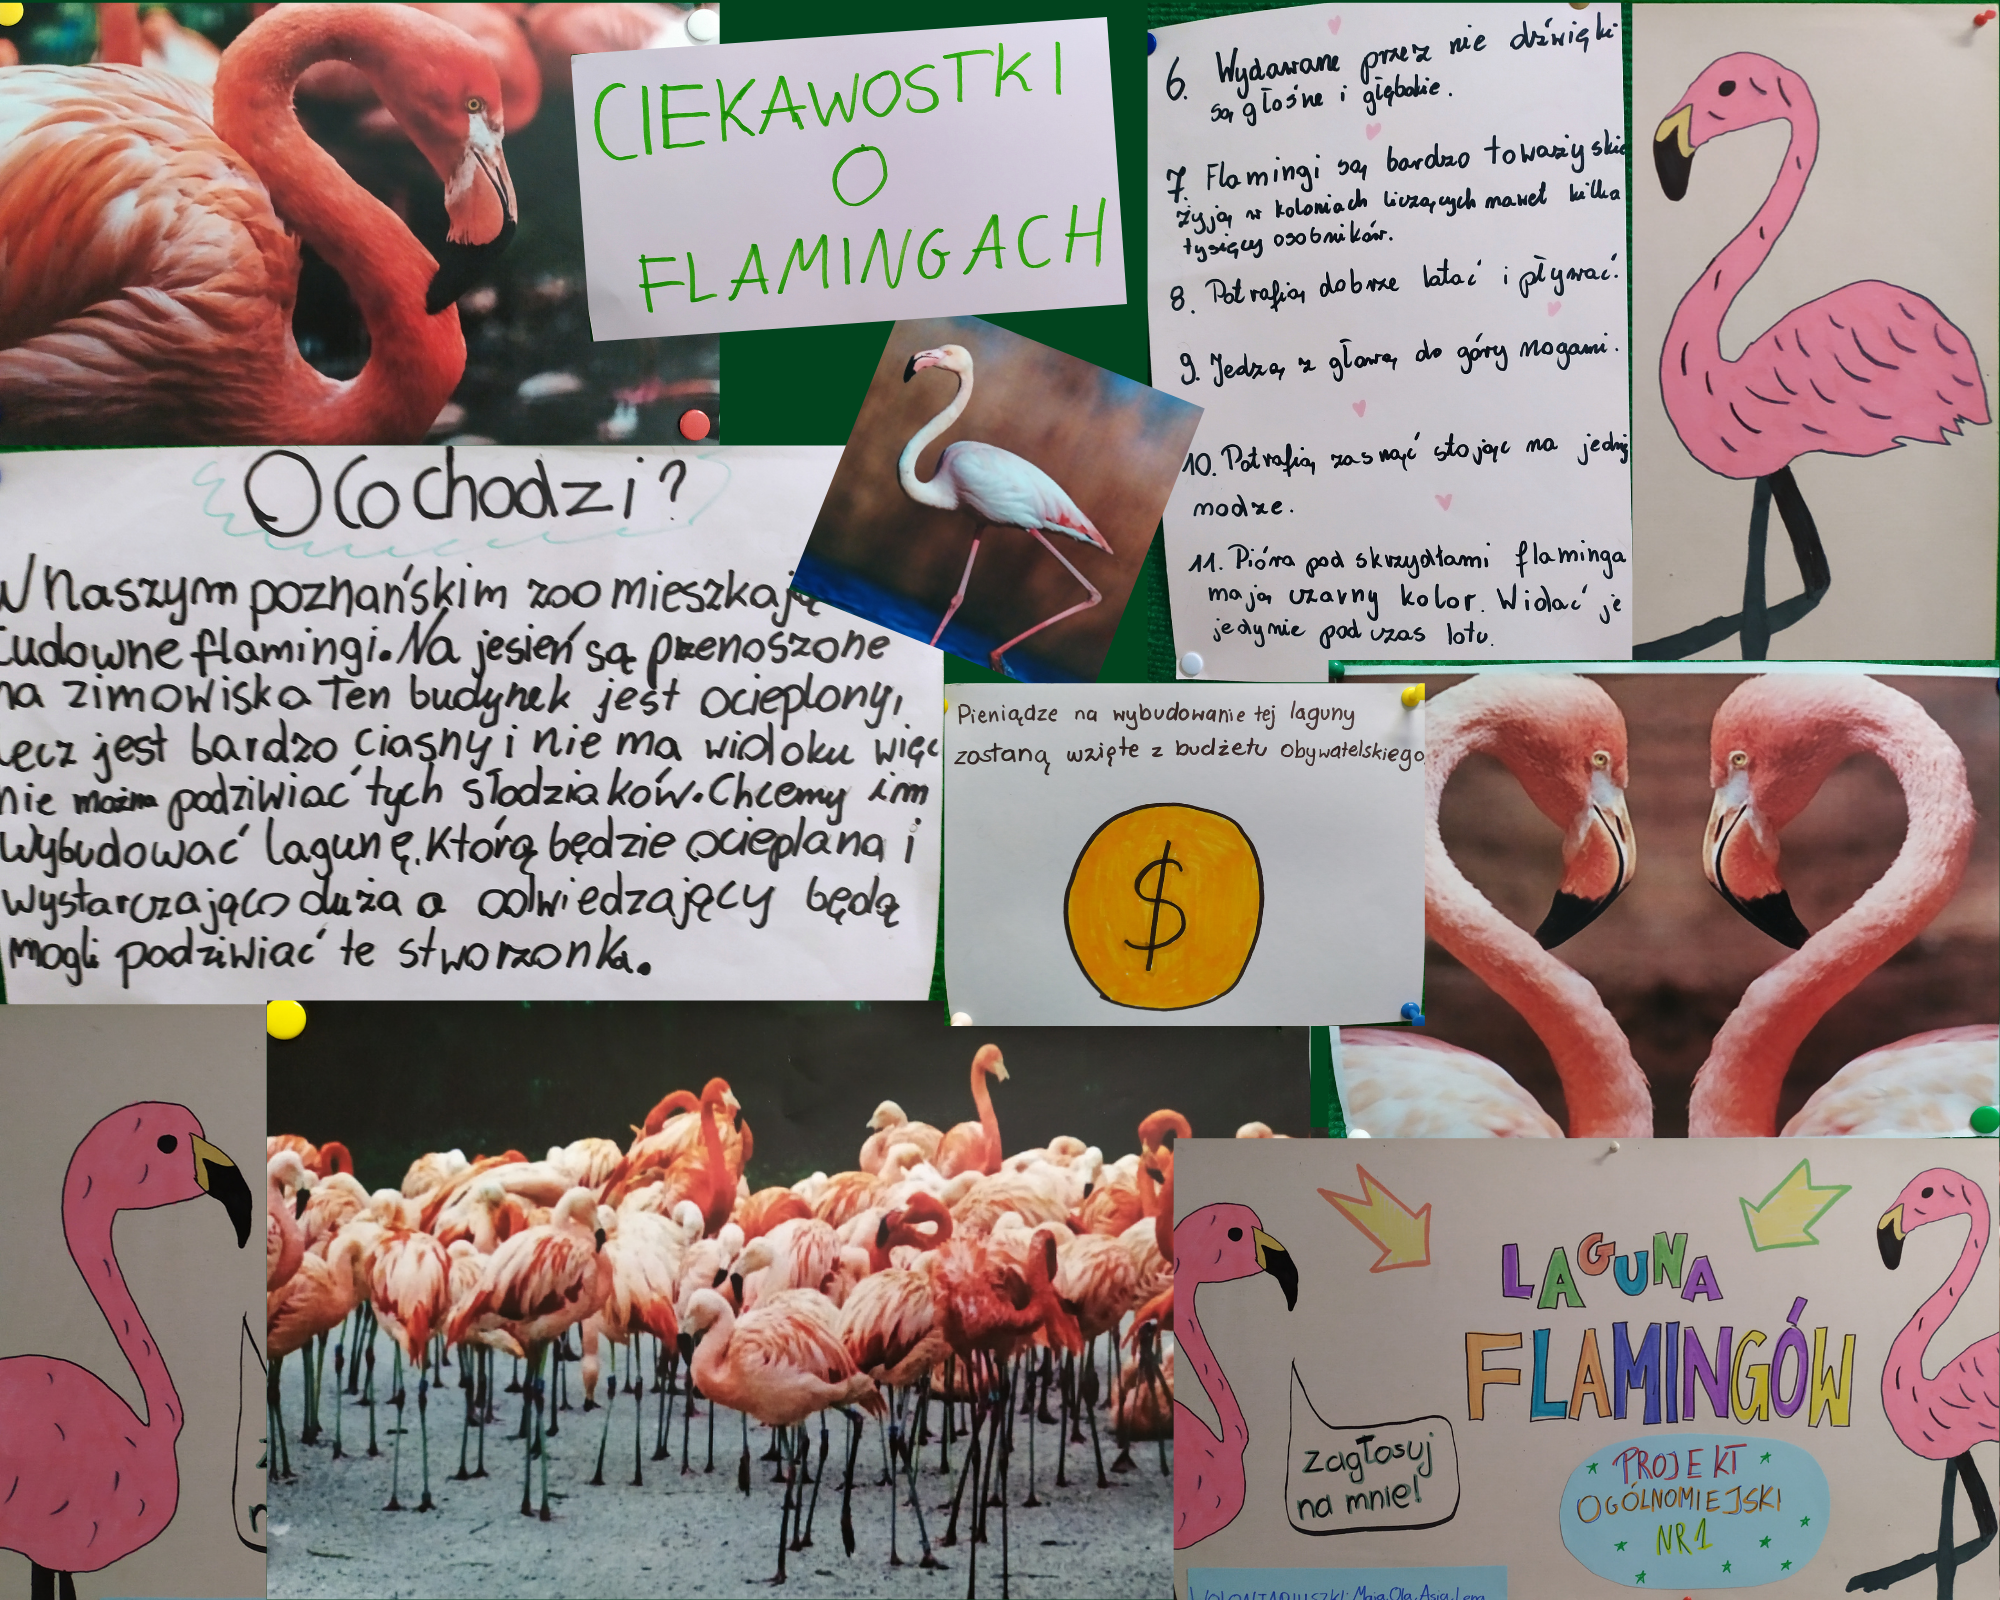 CIEKAWOSTKI
O
FLAMINGACH
6. Wydawane przez nie dźwięki
są głośne i głębokie.
7. Flamingi są bardzo toważyskie
żyją w koloniach liczących nawet kilka
tysięcy osobników.
8. Potrafią dobrze latać i pływać.
9. Jedzą z głową do góry nogami.
10. Potrafią zasnąć stojąc na jednej
nodze.
11. Pióra pod skrzydłami flaminga
mają czarny kolor. Widać je
jedynie pod czas lotu.
O co chodzi?
W Naszym poznańskim zoo mieszkają
cudowne flamingi. Na jesień są przenoszone
na zimowiska Ten budynek jest ocieplony,
Lecz jest bardzo ciasny i nie ma widoku więc
nie można podziwiać tych słodziaków. Chcemy im
wybudować lagunę, Którą będzie ocieplana i
wystarczająco duża a odwiedzający będą
mogli podziwiać te stworzonka.
Pieniądze na wybudowanie tej laguny
zostaną wzięte z budżetu obywatelskiego
$
LAGUNA
FLAMINGÓW
zagłosuj
na mnie!
PROJEKT
OGÓLNOMIEJSKI
NR 1
WOLONTARIUSZKI: Maja, Ola, Asia, Lena